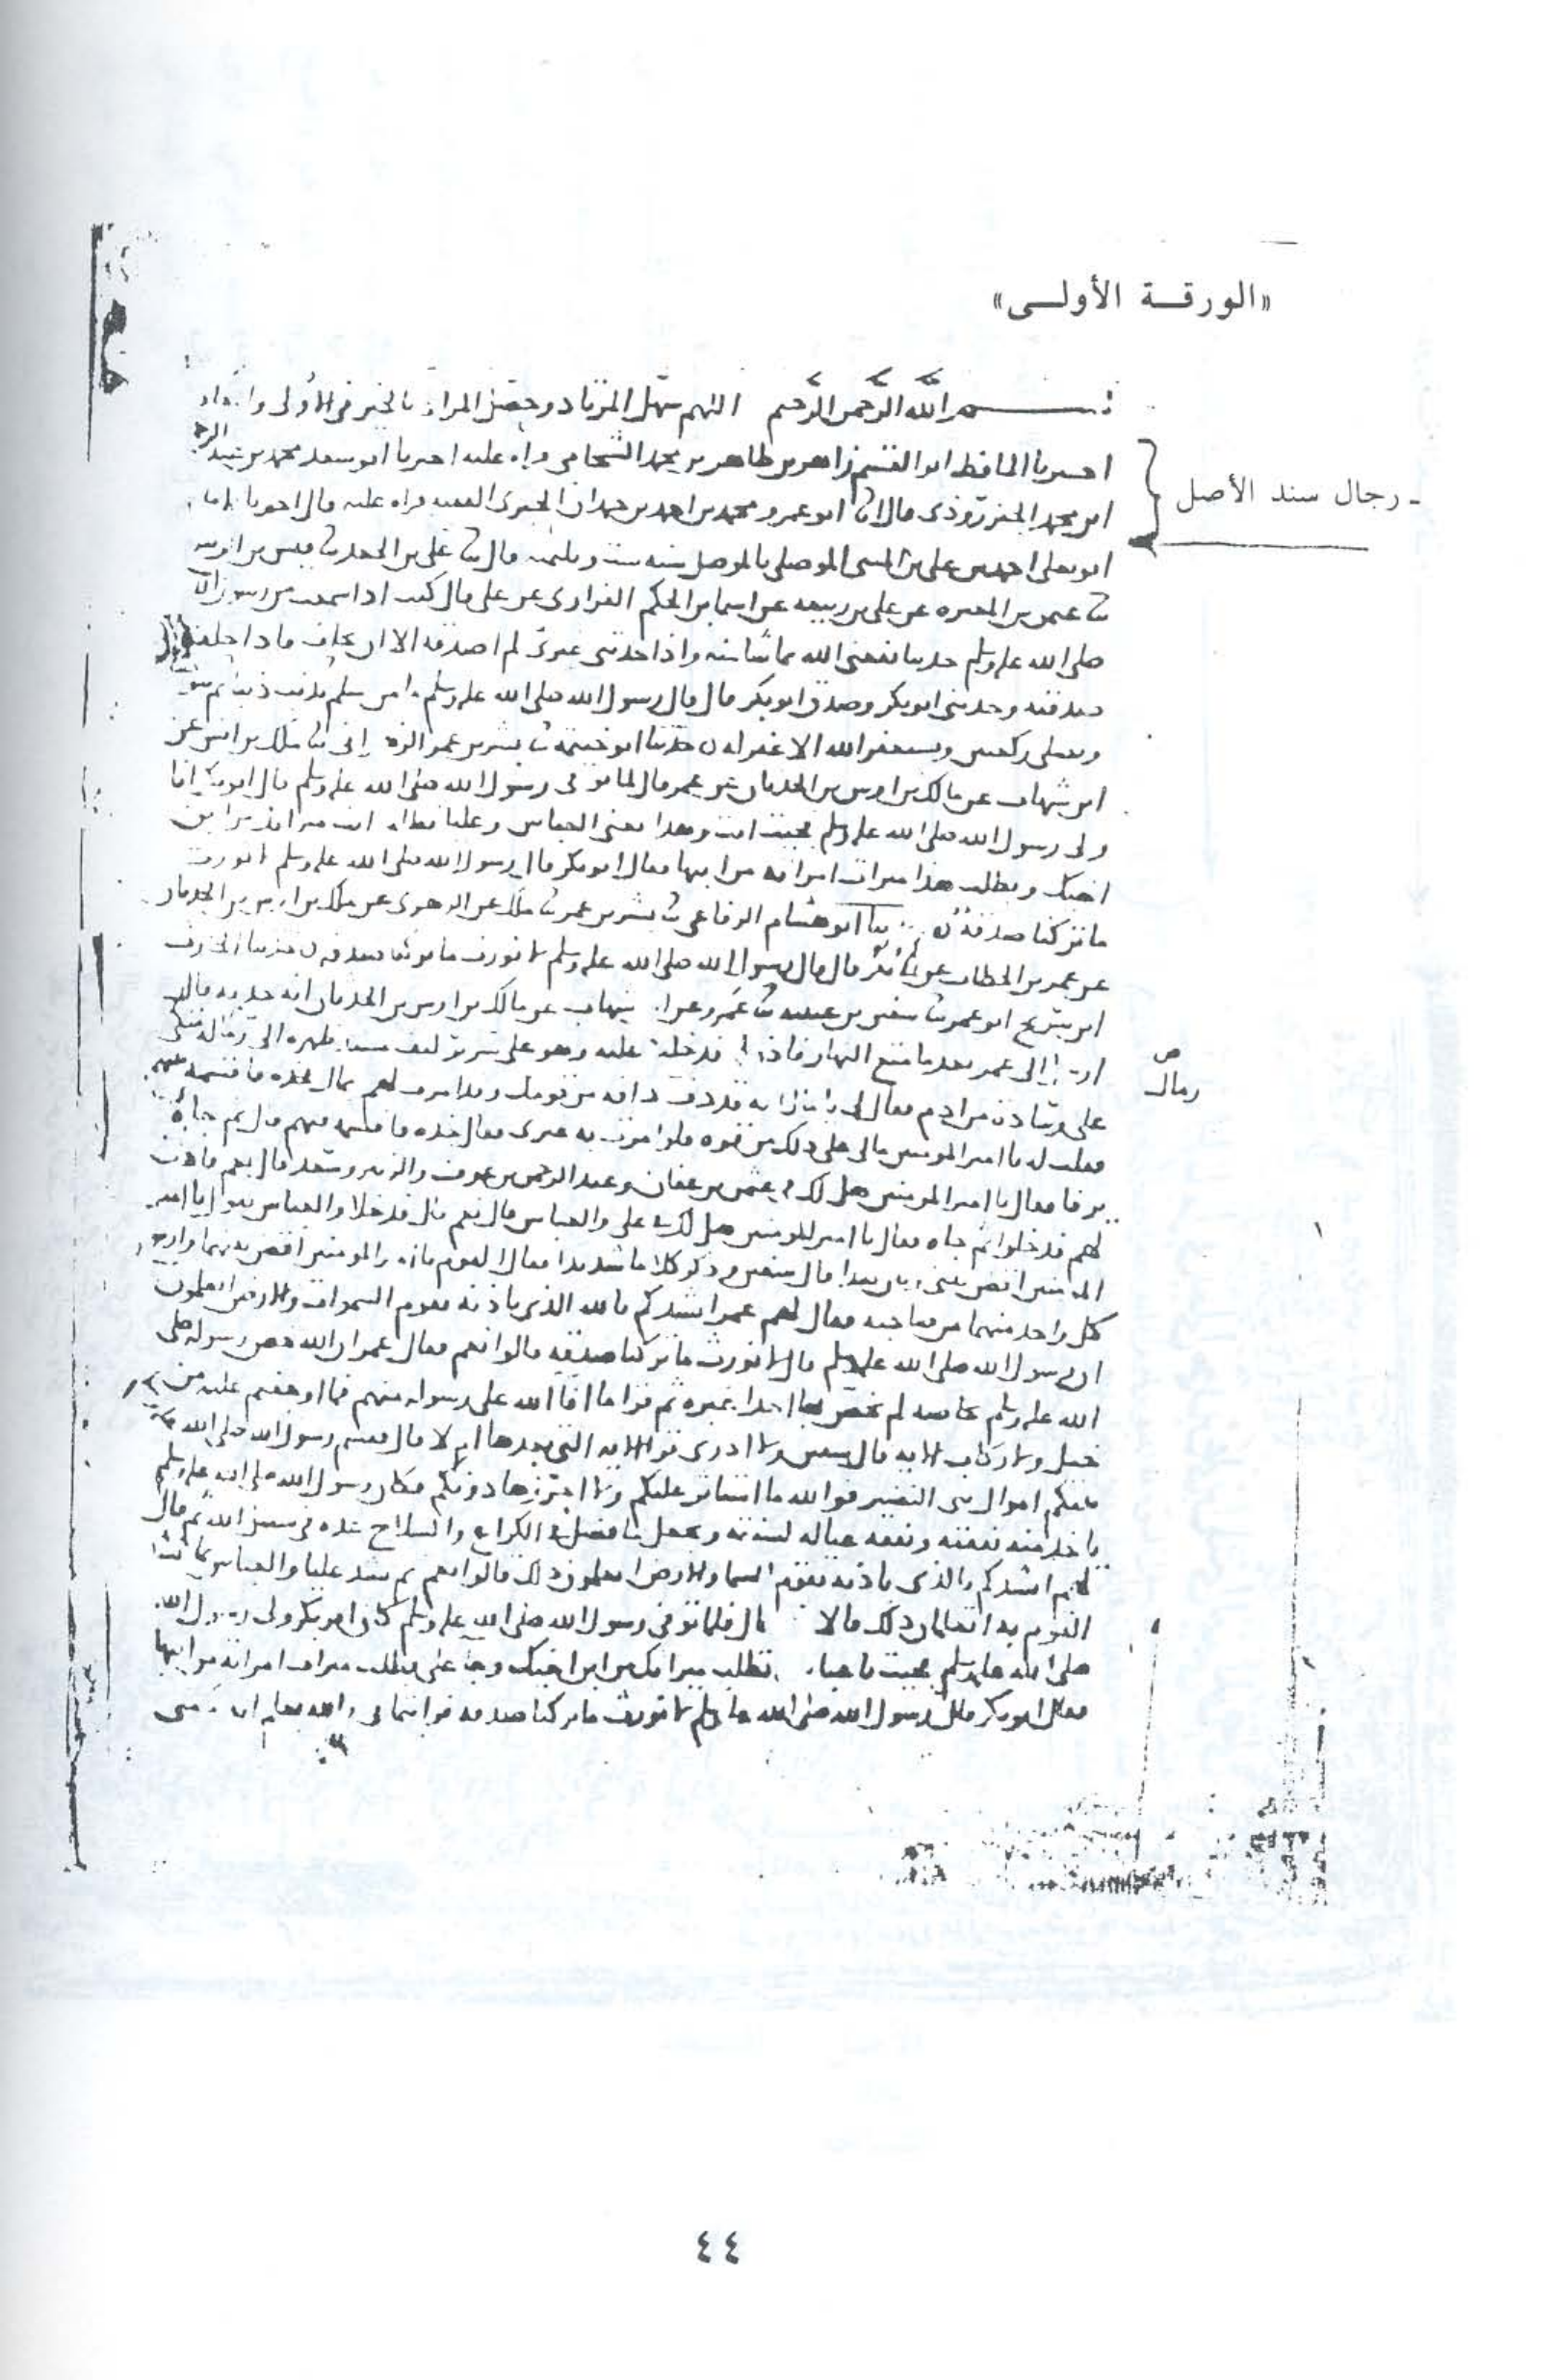 «الورقة الأولى»
بسم الله الرحمن الرحيم اللهم سهل المرتاد وحصل المراد بالخير في الأولى
- رجال سند الأصل
اخبرنا الحافظ ابو القسم زاهر بن طاهر بن محمد الشحامي قراه عليه اخبرنا ابو سعد محمد بن عبد الرحمن
ابن محمد الجنزروذي قال انا ابو عمرو محمد بن احمد بن حمدان الحيري الفقيه قراه عليه قال اخبرنا
ابو يعلى احمد بن علي بن المثنى الموصلي بالموصل سنه ست وثلثمه قال ثنا علي بن الجعد ثنا قيس بن
ثنا عثمن بن المغيره عن علي بن ربيعه عن اسما بن الحكم الفزاري عن علي قال كنت اذا سمعت من رسول الله
صلى الله عليه وسلم حديثا نفعني الله بما شا منه واذا حدثني غيري لم اصدقه الا ان يحلف فاذا حلف
صدقته وحدثني ابو بكر وصدق ابو بكر قال قال رسول الله صلى الله عليه وسلم ما من مسلم يذنب ذنبا ثم
ويصلي ركعتين ويستغفر الله الا غفر له ن حدثنا ابو خيثمة ثنا بشر بن عمر الزهراني ثنا ملك بن انس عن
ابن شهاب عن مالك بن اوس بن الحدثان عن عمر قال لما توفي رسول الله صلى الله عليه وسلم قال ابو بكر انا
ولي رسول الله صلى الله عليه وسلم فجيت انت وهذا يعني العباس وعليا تطلب انت ميراثك من ابن
اخيك ويطلب هذا ميراث امراته من ابيها فقال ابو بكر قال رسول الله صلى الله عليه وسلم لا نورث
ما تركنا صدقة ن حدثنا ابو هشام الرفاعي ثنا بشر بن عمر ثنا ملك عن الزهري عن ملك بن اوس بن الحدثان
عن عمر بن الخطاب عن ابي بكر قال قال رسول الله صلى الله عليه وسلم لا نورث ما تركنا صدقه ن حدثنا الحارث
ابن سريج ابو عمر ثنا سفين بن عيينه ثنا عمرو عن ابن شهاب عن مالك بن اوس بن الحدثان انه حدثه قال
الى عمر بعد ما متع النهار فاذن لي فدخلت عليه وهو على سرير ليف مسند ظهره الى رماله متكي
ص
رمال
على وسادة من ادم فقال لي يا مال انه قد دف دافه من قومك وقد امرت لهم بمال فخذه فاقسمه بينهم
فقلت له يا امير المومنين مالي على ذلك من قوه فلو امرت به غيري فقال خذه فاقسمه فيهم قال ثم جاه
يرفا فقال يا امير المومنين هل لك في عثمن بن عفان وعبد الرحمن بن عوف والزبير وسعد قال نعم فاذن
لهم فدخلوا ثم جاه فقال يا امير المومنين هل لك في علي والعباس قال نعم قال فدخلا والعباس يقول يا امير
المومنين اقض بيني وبين هذا قال سفين وذكر كلاما شديدا فقال القوم يا امير المومنين اقض بينهما وارح
كل واحد منهما من صاحبه فقال لهم عمر انشدكم بالله الذي باذنه تقوم السموات والارض اتعلمون
ان رسول الله صلى الله عليه وسلم قال لا نورث ما تركنا صدقه قالوا نعم فقال عمر ان الله خص رسوله صلى
الله عليه وسلم بخاصه لم يخص بها احدا غيره ثم قرا ما افا الله على رسوله منهم فما اوجفتم عليه من
خيل ولا ركاب الايه قال سفين ولا ادري قرا الايه التي بعدها ام لا قال فقسم رسول الله صلى الله عليه
بينكم اموال بني النضير فوالله ما استاثر عليكم ولا احترزها دونكم فكان رسول الله صلى الله عليه وسلم
ياخذ منه نفقته ونفقه عياله لسنته ويجعل ما فضل في الكراع والسلاح عده في سبيل الله ثم قال
لهم انشدكم بالذي باذنه تقوم السما والارض اتعلمون ذلك قالوا نعم ثم نشد عليا والعباس بما نشد
القوم به اتعلمان ذلك قالا قال فلما توفي رسول الله صلى الله عليه وسلم كان ابو بكر ولي رسول الله
صلى الله عليه وسلم فجيت يا عباس تطلب ميراثك من ابن اخيك وجا علي يطلب ميراث امراته من ابيها
فقال ابو بكر قال رسول الله صلى الله عليه وسلم لا نورث ما تركنا صدقه فرايتماني والله يعلم انه
٤٤